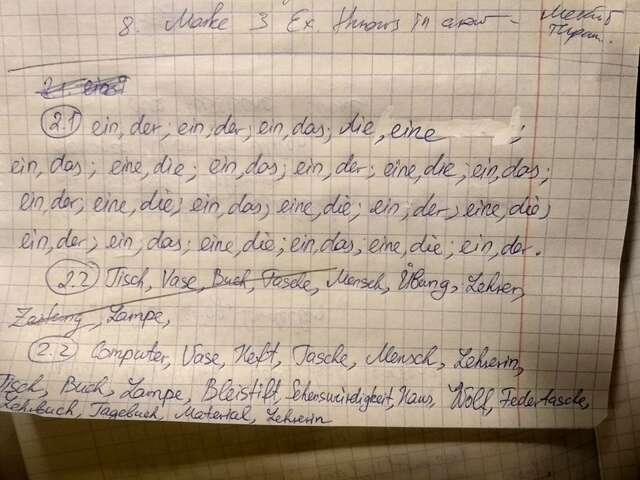 8. Make 3 Ex. throws in
2.1 ein, der; ein, der; ein, das; die, eine ;
ein, das; eine, die; ein, das; ein, der; eine, die; ein, das;
ein, der; eine, die; ein, das; eine, die; ein, der; eine, die;
ein, der; ein, das; eine, die; ein, das, eine, die; ein, der.
2.2 Tisch, Vase, Buch, Tasche, Mensch, Übung, Lehrer,
Zeitung, Lampe,
2.2 Computer, Vase, Heft, Tasche, Mensch, Lehrerin,
Tisch, Buch, Lampe, Bleistift, Sehenswürdigkeit, Haus, Wolf, Federtasche,
Lehrbuch, Tagebuch, Material, Lehrerin